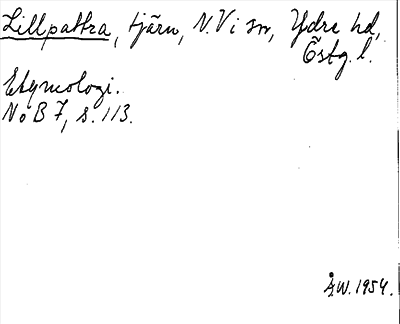 Lillpattra, tjärn, N. Vi sn, Ydre hd,
Östg. l.
Etymologi.
NoB 7, s. 113.
Å.W. 1954.